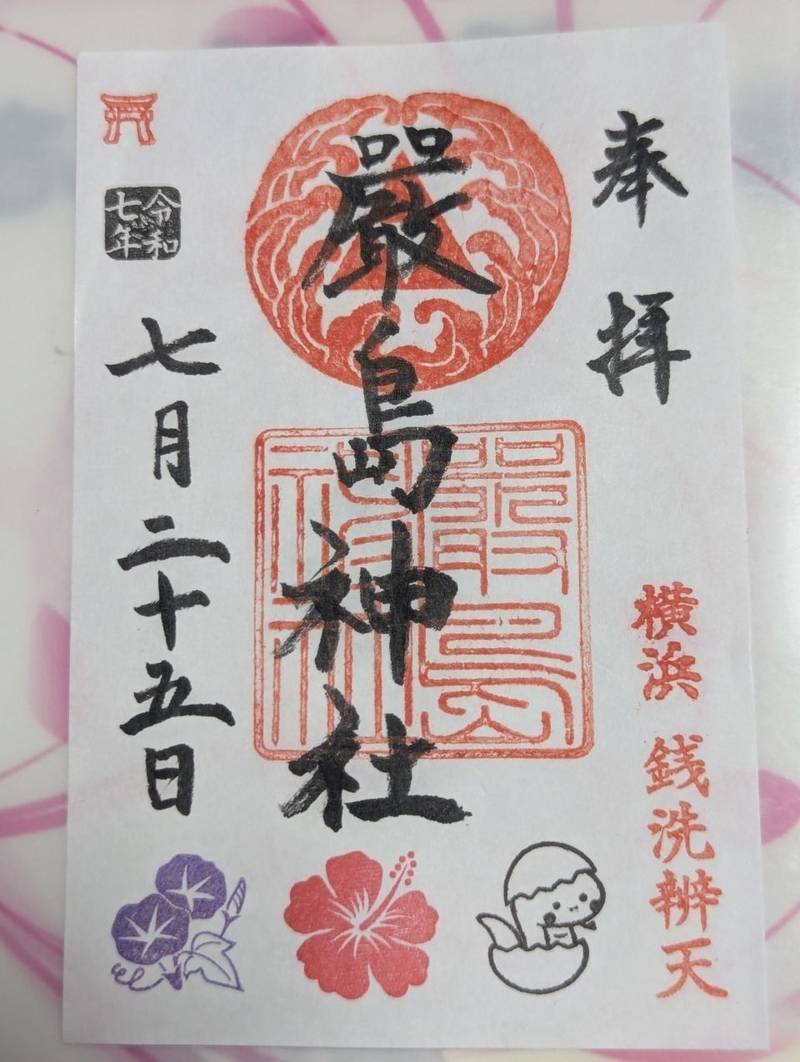 奉拝
横浜 銭洗辨天
嚴島神社
嚴島
神社
令和
七年
七月二十五日